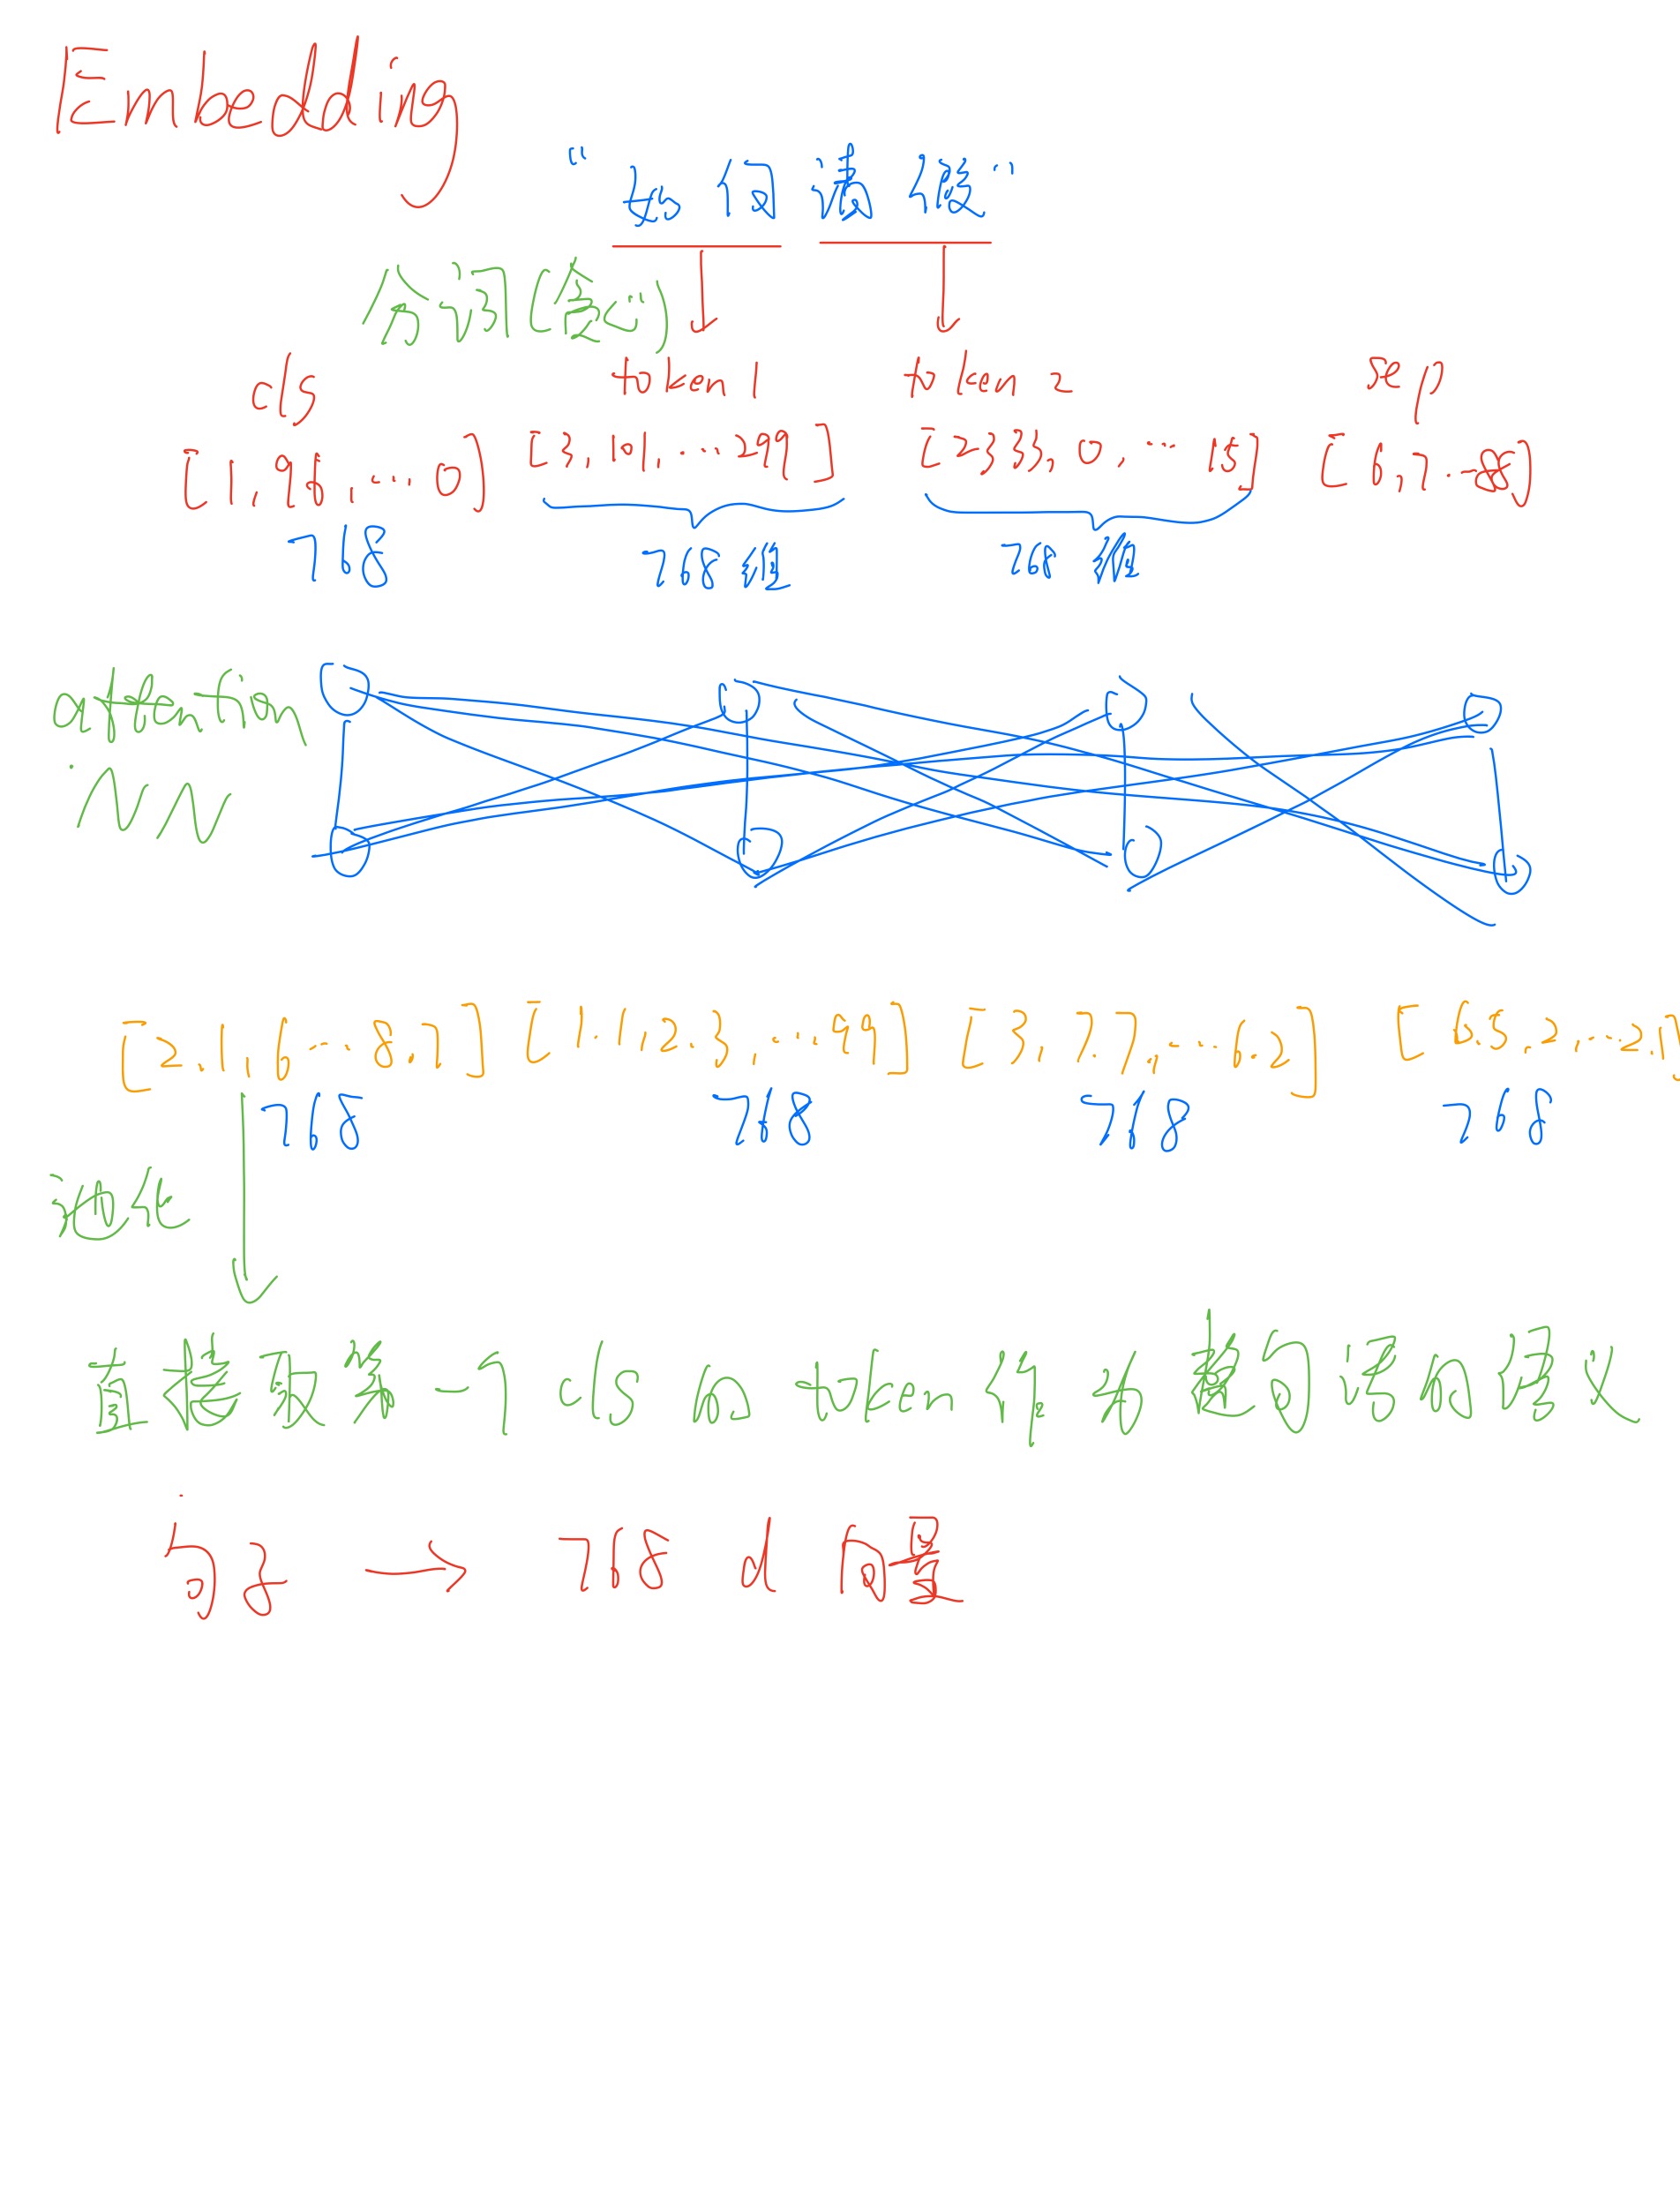 Embeddig
"如何请假"
分词(贪心)
cls token1 token2 sep
[1,96,...0] [3,101,...299] [233,0,...15] [6,7..8]
768 768维 768 维
attention
NN
[2.1,6...8.7] [1.1,2.3,...99] [3,7.7,...6.2] [6.5,2,...2,1]
768 768 768 768
池化
直接取第一个cls的token作为整句话的语义
句子 → 768 d 向量